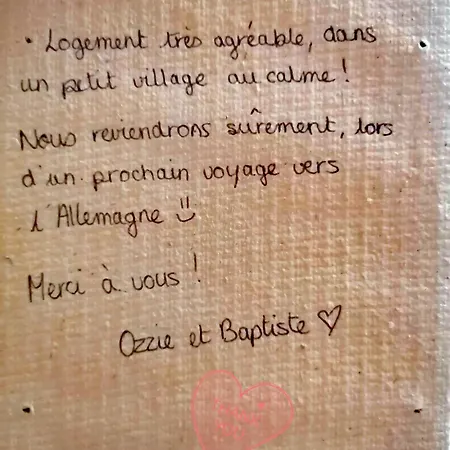 • Logement très agréable, dans
un petit village au calme !
Nous reviendrons sûrement, lors
d'un prochain voyage vers
l'Allemagne =)
Merci à vous !
Ozzie et Baptiste ♡